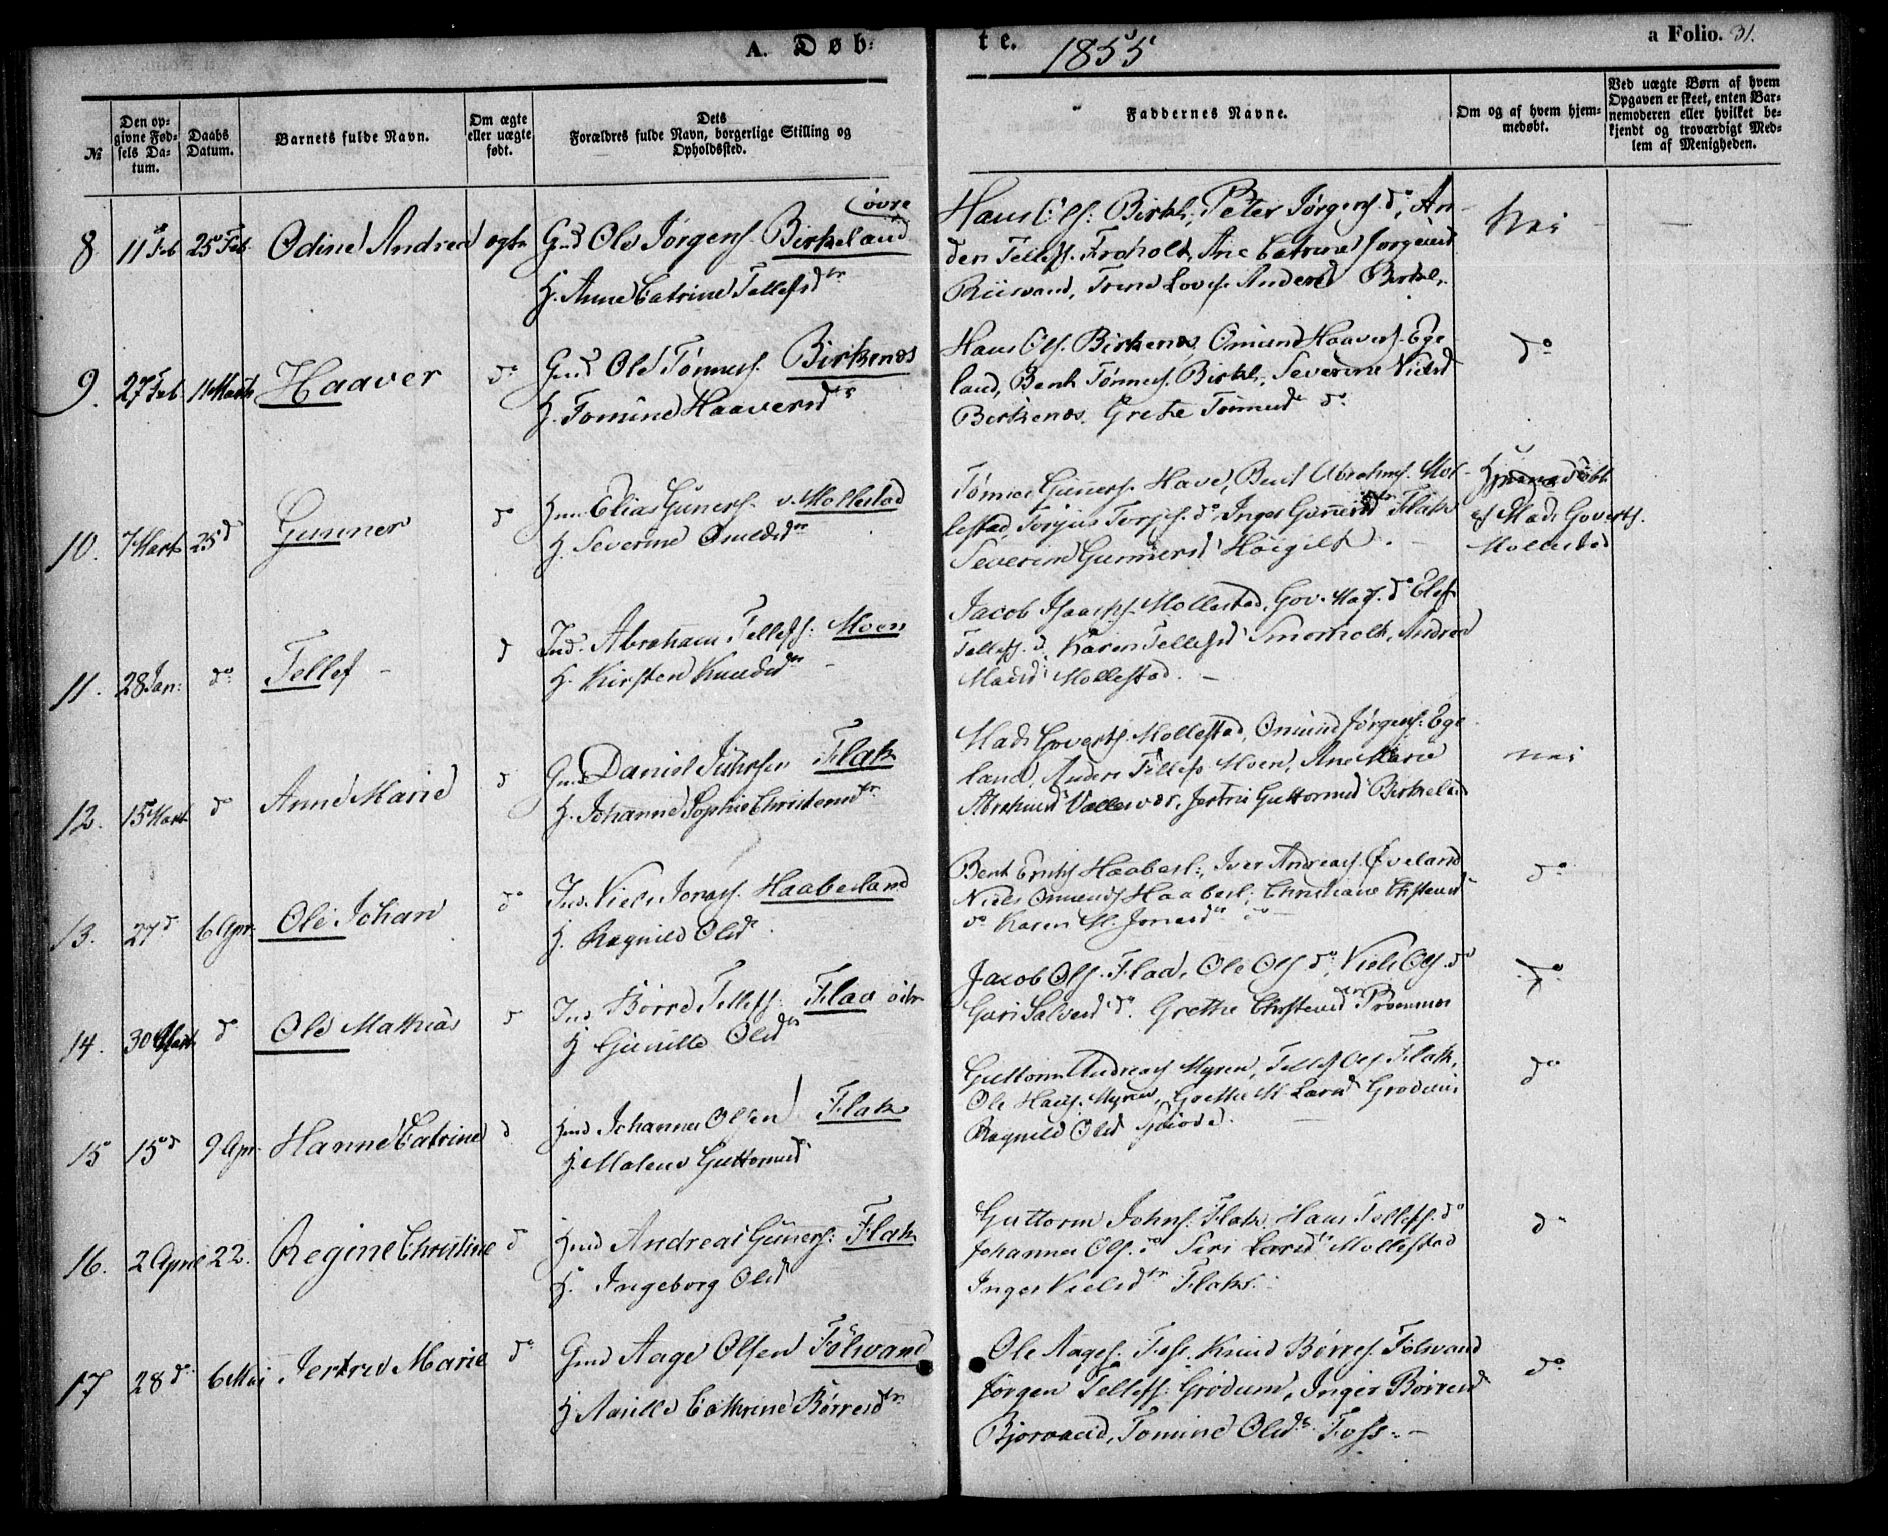 A. Døb: te. 1855 a Folio. 31.
№
Den op-
givne Fød-
sels Da-
tum.
Daabs
Datum.
Barnets fulde Navn.
Om ægte
eller uægte
født.
Dets
Forældres fulde Navn, borgerlige Stilling og
Opholdssted.
Faddernes Navne.
Om og af hvem hjem-
medøbt.
Ved uægte Børn af hvem
Opgaven er skeet, enten Bar-
nemoderen eller hvilket be-
kjendt og troværdigt Med-
lem af Menigheden.
8. 11 Feb 25 Feb. Odine Andrea ægte Gmd Ole Jørgens. Birkeland øvre
H. Anne Catrine Tellefsdtr
Hans Ols: Birkl., Peter Jørgens do, An-
ders Tellefs. Froholt, Ane Catrine Jorgensd
Riisvand, Trine Lovise Andersd Birkl.
Nei
9. 27 Feb. 11 Marts Haaver do Gmd Ole Tønnes. Birkenes
H. Tomine Haaversdtr
Hans Ols. Birkenes, Omund Haavers. Ege
land, Bent Tønnes. Birkl., Severine Nielsd
Birkenes. Grete Tønnesd do
do
10. 7 Marts 25 d Gunner do Hmd Elias Guners. v. Mollestad
H. Severine Omdsdtr
Tønnes Guners. Have, Bent Abrahms. Mol-
lestad, Torjus Torjs. do, Inger Gunersd Flak
Severine Gunnersd Höigilt.
Hjemdøbt
af Mads Goverts.
Mollestad
11. 28 Jan: do Tellef d Ind. Abraham Tellefs: Moen
H. Kirsten Knudsdtr
Jacob Isaachs. Mollestad, Gov. Mads. do Elef
Tellefs. d. Karen Tellefsd Smorholt, Andrea
Madsd Mollestad.
12. 15 Marts d Anne Marie d Gmd Daniel Flak
H. Johanne Sophie Christensdtr
Mads Goverts. Mollestad, Omund Jørgens: Ege
land, Anders Tellefs. Moen, Ane Marie
Abrahmsd Vallesvær, Jertru Guttormsd Birkeland
Nei
13. 27 d 6 Apr. Ole Johan do Ind. Niels Jonas. Haabesland
H. Ragnild Olsd.
Bent Haabesl:, Iver Andreas. Øveland
Niels Omunds. Haabesl; Christiane Chstensd
do Karen M. Jonasd do
do
14. 30 Marts d Ole Mathias d Ind Børre Tellefs: Flaa
H Gunille Olsdtr
Jacob Ols. Flaa, Ole Ols do, Niels Ols. do
Guri Salvesd do. Grethe Chrstensd
do
15 15 d 9 Apr. Hanne Catrine d Hmd Johannes Olsen Flak
H. Malene Guttormsd
Guttorm Andreas Myren, Tellef Ols Flak,
Ole Hans. Myren, Grethe M. Larsd Grødum
Ragnild Olsd
do
16. 2 April 22. Regine Christine d Hmd Andreas Guners: Flak
H. Ingeborg Olsd
Guttorm Johns. Flak. Hans Tellefs. do
Johannes Ols. do Siri Larsd Mollestad
Inger Nielsdtr Flak.
do
17 28 d 6 Mai Jertru Marie do Gmd Aage Olsen Fölvand
H Cathrine Børresdtr
Ole Aages. Foss. Knud Børres. Følvand
Jørgen Tellefs: Grødum, Inger Børresd
Bjorvand, Tomine Olsd Foss.
do